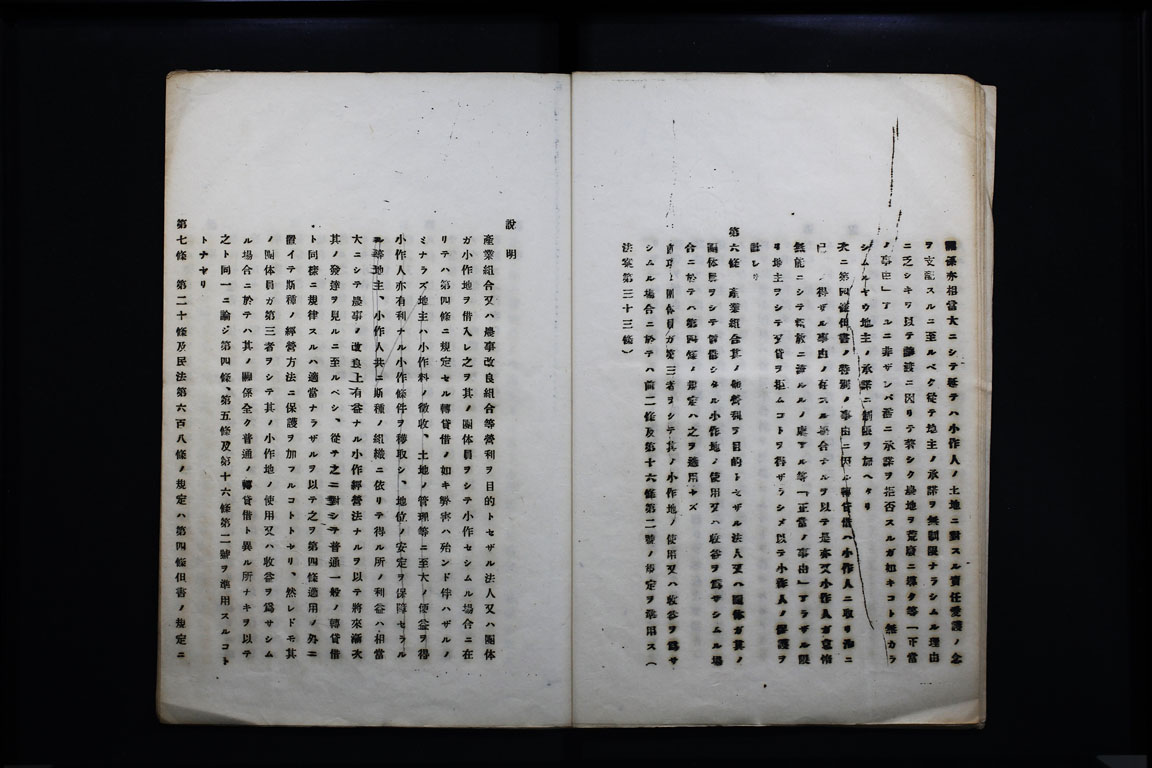 關係亦相當大ニシテ延テハ小作人ノ土地ニ對スル責任愛護ノ念
ヲ支配スルニ至ルベク從テ地主ノ承諾ヲ無制限ナラシムル理由
ニ乏シキヲ以テ轉貸ニ因リテ著シク農地ヲ荒廢ニ導ク等「正當
ノ事由」アルニ非ザレバ番ニ承諾ヲ拒否スルガ如キコト無カラ
シムルヤウ地主ノ承諾ニ制限ヲ加ヘタリ
次ニ第四條但書ノ特別ノ事由ニ因ル轉貸借ハ小作人ニ取リ洵ニ
已ムヲ得ザル事由ノ存スル場合ナルヲ以テ是亦又小作人ガ怠惰
無能ニシテ轉貸ニ流ルルノ虞アル等「正當ノ事由」アラザル限
リ地主ヲシテ轉貸ヲ拒ムコトヲ得ザラシメ以テ小作人ノ保護ヲ
計レリ
第六條 產業組合其ノ他營利ヲ目的トセザル法人又ハ團體ガ其ノ
團体員ヲシテ賃借シタル小作地ノ使用又ハ收益ヲ爲サシムル場
合ニ於テハ第四條ノ規定ハ之ヲ適用セズ
前項ノ團体員ガ第三者ヲシテ其ノ小作地ノ使用又ハ收益ヲ爲サ
シムル場合ニ於テハ前二條及第十六條第二號ノ規定ヲ準用ス(
法案第三十三條)
說明
產業組合又ハ農事改良組合等營利ヲ目的トセザル法人又ハ團体
ガ小作地ヲ借入レ之ヲ其ノ團体員ヲシテ小作セシムル場合ニ在
リテハ第四條ニ規定セル轉貸借ノ如キ弊害ハ殆ンド伴ハザルノ
ミナラズ地主ハ小作料ノ徵收、土地ノ管理等ニ至大ノ便益ヲ得
小作人亦有利ナル小作條件ヲ穫取シ、地位ノ安定ヲ保障セラル
ル等地主、小作人共ニ斯種ノ組織ニ依リテ得ル所ノ利益ハ相當
大ニシテ農事ノ改良上有益ナル小作經營法ナルヲ以テ將來漸次
其ノ發達ヲ見ルニ至ルベシ、從テ之ニ對シテ普通一般ノ轉貸借
ト同樣ニ規律スルハ適當ナラザルヲ以テ之ヲ第四條適用ノ外ニ
置イテ斯種ノ經營方法ニ保護ヲ加フルコトトセリ、然レドモ其
ノ團体員ガ第三者ヲシテ其ノ小作地ノ使用又ハ收益ヲ爲サシム
ル場合ニ於テハ其ノ關係全ク普通ノ轉貸借ト異ル所ナキヲ以テ
之ト同一ニ論ジ第四條、第五條及第十六條第二號ヲ準用スルコト
トナセリ
第七條 第二十條及民法第六百八條ノ規定ハ第四條但書ノ規定ニ